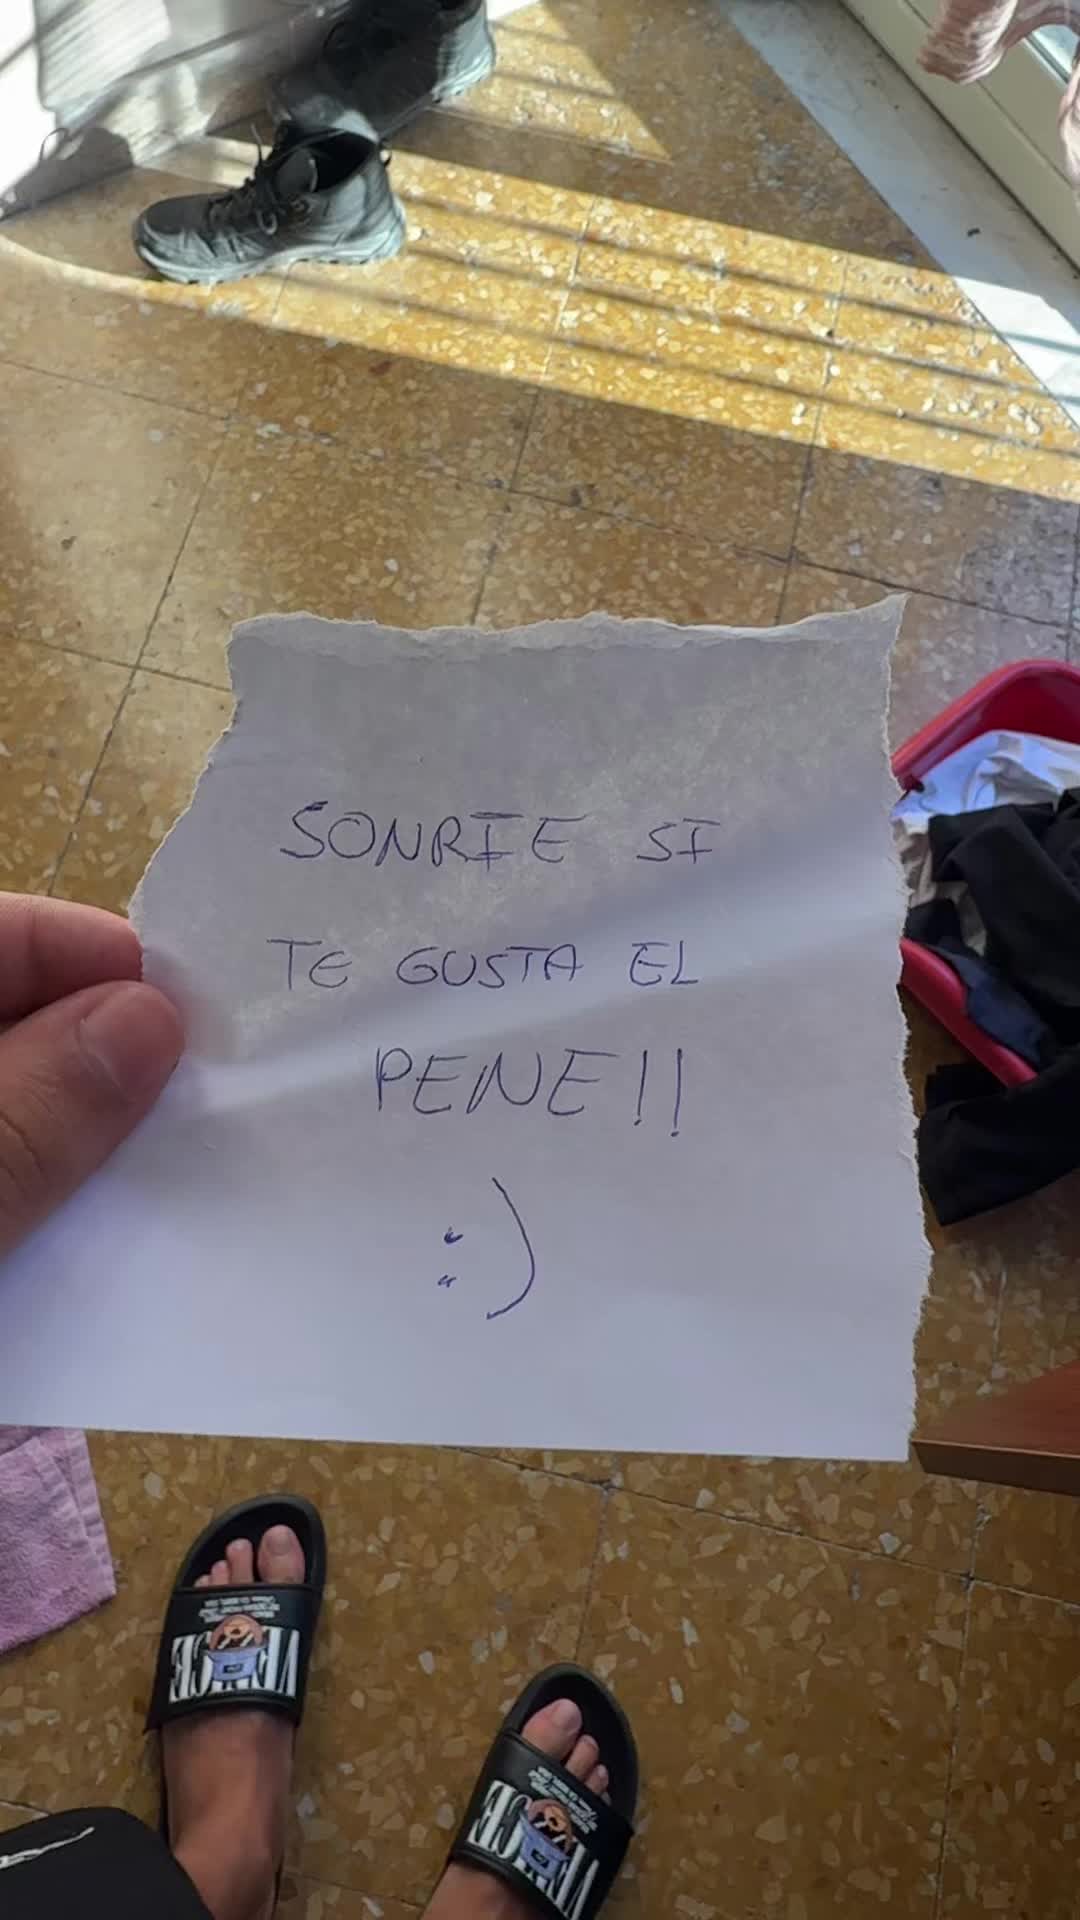 SONRIE SI
TE GUSTA EL
PENE!!
:)
VENICE